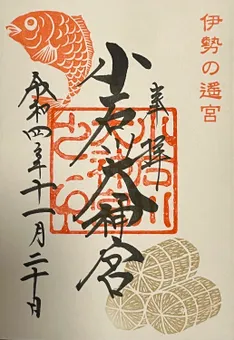 伊勢の遥宮
奉拝
小石川大神宮
令和四年十一月二十日